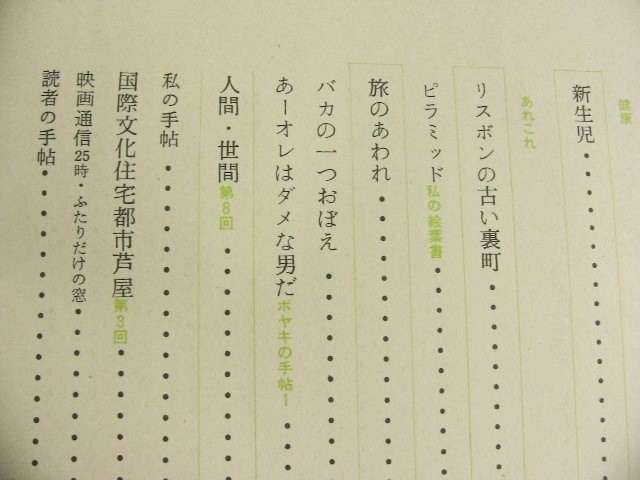 健康
新生児
あれこれ
リスボンの古い裏町
ピラミッド 私の絵葉書
旅のあわれ
バカの一つおぼえ
あーオレはダメな男だ ボヤキの手帖1
人間・世間 第8回
私の手帖
国際文化住宅都市芦屋 第3回
映画通信 25時・ふたりだけの窓
読者の手帖